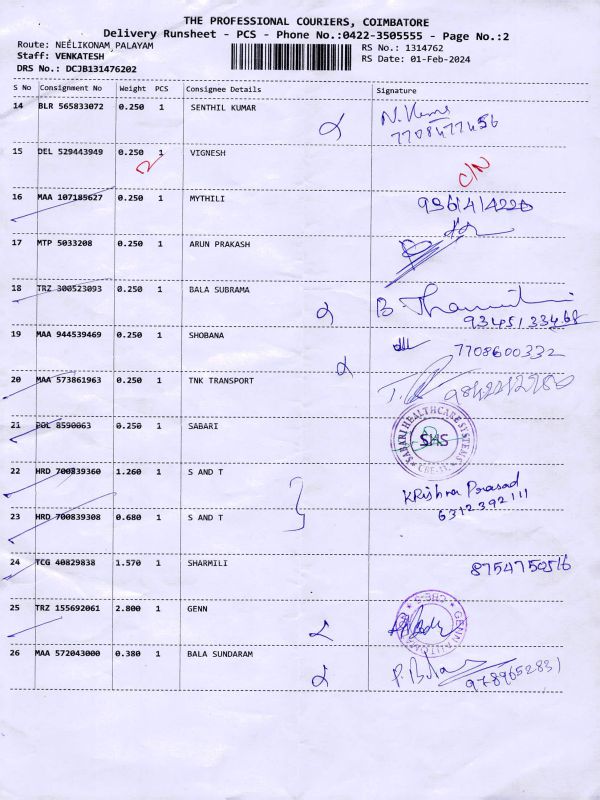 THE PROFESSIONAL COURIERS, COIMBATORE
Delivery Runsheet - PCS - Phone No.:0422-3505555 - Page No.:2
Route: NEELIKONAM PALAYAM
RS No.: 1314762
Staff: VENKATESH
RS Date: 01-Feb-2024
DRS No.: DCJB131476202
S No Consignment No Weight PCS Consignee Details Signature
14 BLR 565833072 0.250 1 SENTHIL KUMAR
7708477456
15 DEL 529443949 0.250 1 VIGNESH
C/N
16 MAA 107185627 0.250 1 MYTHILI
17 MTP 5033208 0.250 1 ARUN PRAKASH
18 TRZ 300523093 0.250 1 BALA SUBRAMA
9345133468
19 MAA 944539469 0.250 1 SHOBANA 7708600332
20 MAA 573861963 0.250 1 TNK TRANSPORT
21 POL 8590063 0.250 1 SABARI
SABARI HEALTHCARE SYSTEMS
SHS
22 HRD 700839360 1.260 1 S AND T
KRishna Prasad
6312392111
23 HRD 700839308 0.680 1 S AND T
24 TCG 40829838 1.570 1 SHARMILI 8754750516
25 TRZ 155692061 2.800 1 GENN
26 MAA 572043000 0.380 1 BALA SUNDARAM
P. Bala
9789652831